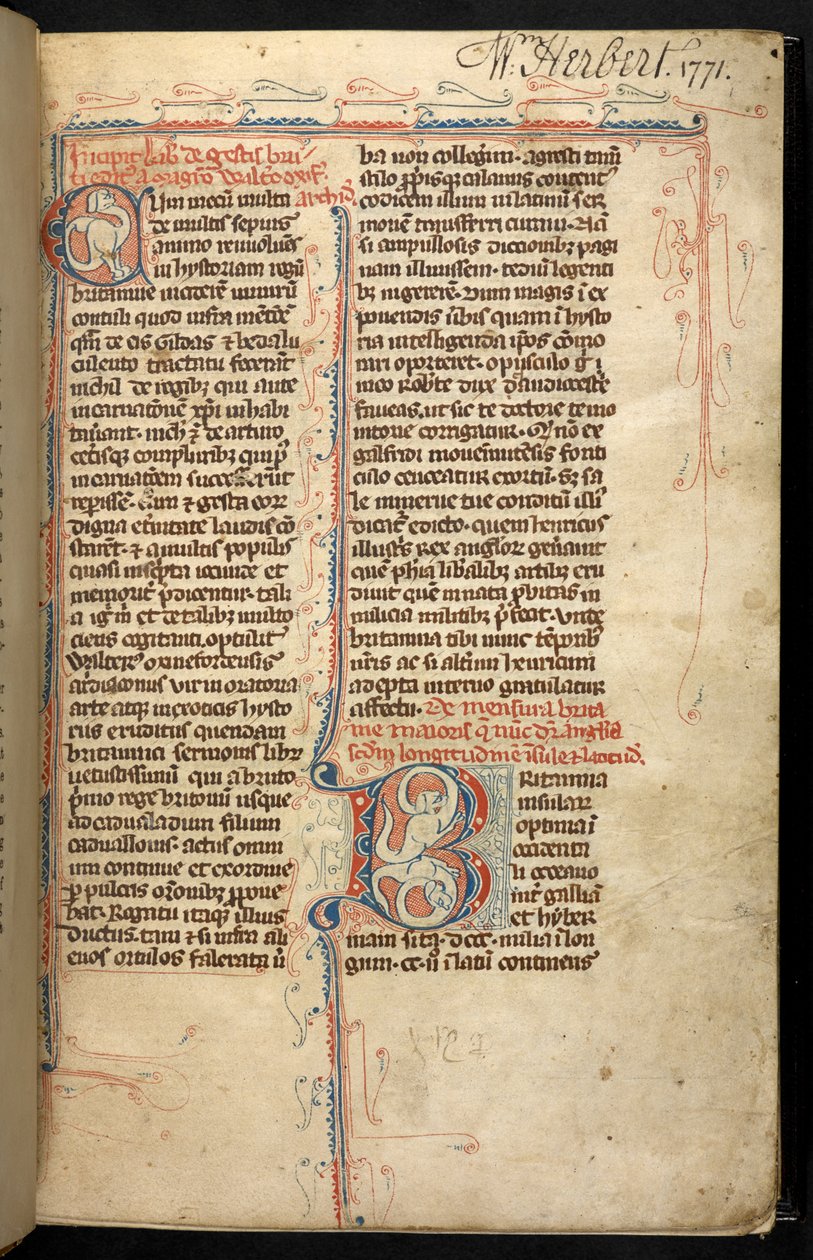 Wm. Herbert. 1771.
Incipit lib de gestis bru
ti edit a magro Waltero oxif.
archid.
Cum mecum multa
de multis sepius
animo revolues
in hystoriam regu
britannie inciderem in miru
contuli quod infra mentoe
qm de eis Gildas & beda lu
culento tractatu fecerat
nichil de regibz qui ante
incarnatone xpi inhabi
taverant. nich & de arturo
cetisqz compluribz qui p
incarnatoem successerunt
repisse. Cum & gesta eorz
digna eternitate laudis co
starent. & a multis populis
quasi inscpta iocunde et
memorit pdicentur. tali
a ig m et de talibz multo
ciens cogitanti. optulit
Walterus oxinefordensis
archidiaconus vir in oratoria
arte atqz in exoticis hysto
riis eruditus quendam
britannici sermonis libru
vetustissimum qui a bruto
pmo rege britonum usque
ad cadvaladrum filium
cadvallonis. actus omni
um continue et ex ordine
p pulcris oronibz ppone
bat. Rogatu itaqz illius
ductus. tam & si infra ali
enos ortulos falerata v
ba non collegerim. agresti tam
stilo ppiisqz calamis content
codicem illum in latinum ser
monem transferri curavi. Na
si ampullosis diccionibz pagi
nam illinissem. tedium legenti
bz ingererem. Dum magis i ex
ponendis vbis quam i hysto
ria intelligenda ipos como
rari oporteret. opusculo g i
meo Robte dux claudiocestre
faveas. ut sic te doctore te mo
nitore corrigatur. Q no ex
galfridi monemutensis fonti
culo censeatur exortum. sz sa
le minerve tue conditum illi
dicat edicto. quem henricus
illustris rex anglorz genuit
que phia libalibz artibz eru
divit que innata pbitas in
milicia militibz pfecit. unde
britannia tibi nunc tempib
nris ac si alterum henricum
adepta interno gratulatur
affectu. De mensura brita
nie maioris q nuc dr anglia
scdm longitudine insule & latitud.
BRitannia
insularz
optima i
occidenta
li occeano
int galliam
et hyber
niam sita. dccc. milia i lon
gum. cc. i latum continens